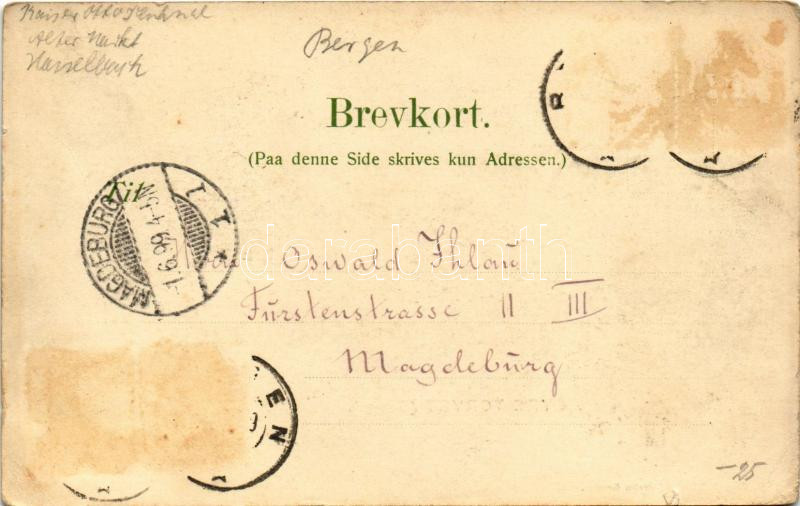 Kaiser Otto Denkmal
Alter Markt
Hasselbach
Bergen
Brevkort.
(Paa denne Side skrives kun Adressen.)
Til
MAGDEBURG
1.6.99 4-5N
1 1
*
Oswald Ihlau
Fürstenstrasse 11 III
Magdeburg
EN
-25
darabanth